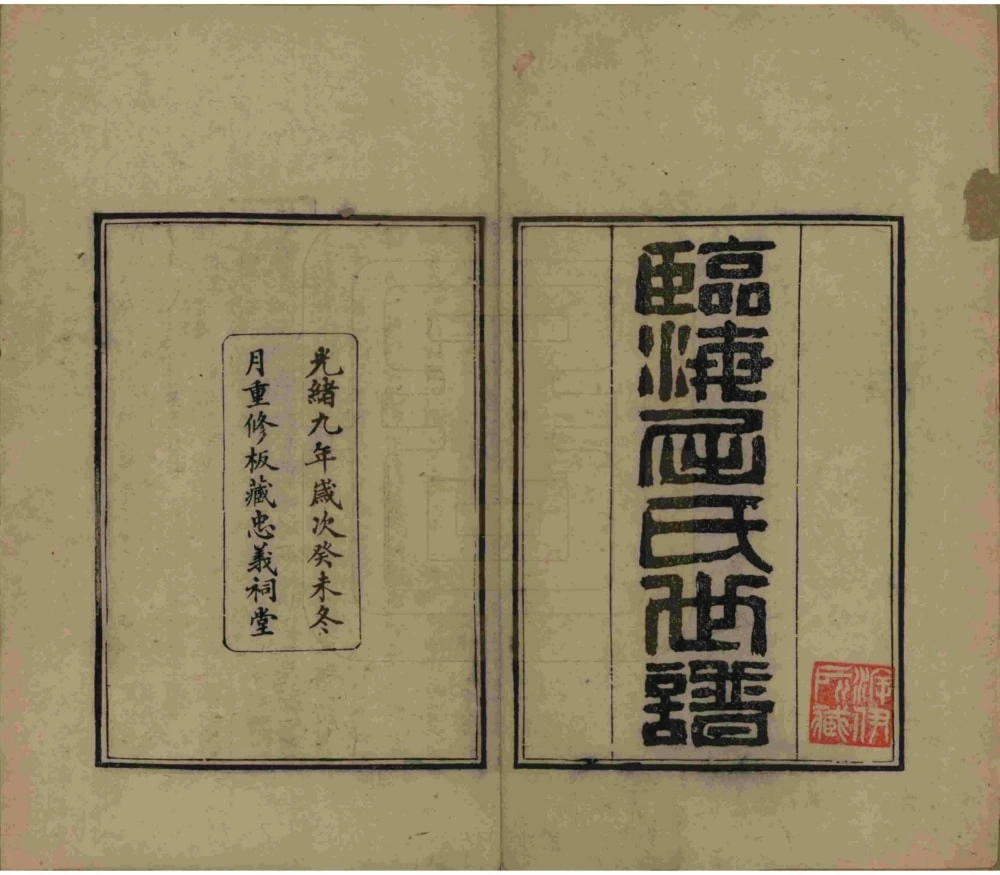 臨海屈氏世譜
伊
所藏
光緒九年歲次癸未冬
月重修板藏忠義祠堂